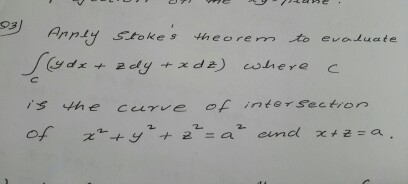 Q3) Apply Stoke's theorem to evaluate
∫_C (ydx + zdy + xdz) where C
is the curve of intersection
of x² + y² + z² = a² and x+z = a.